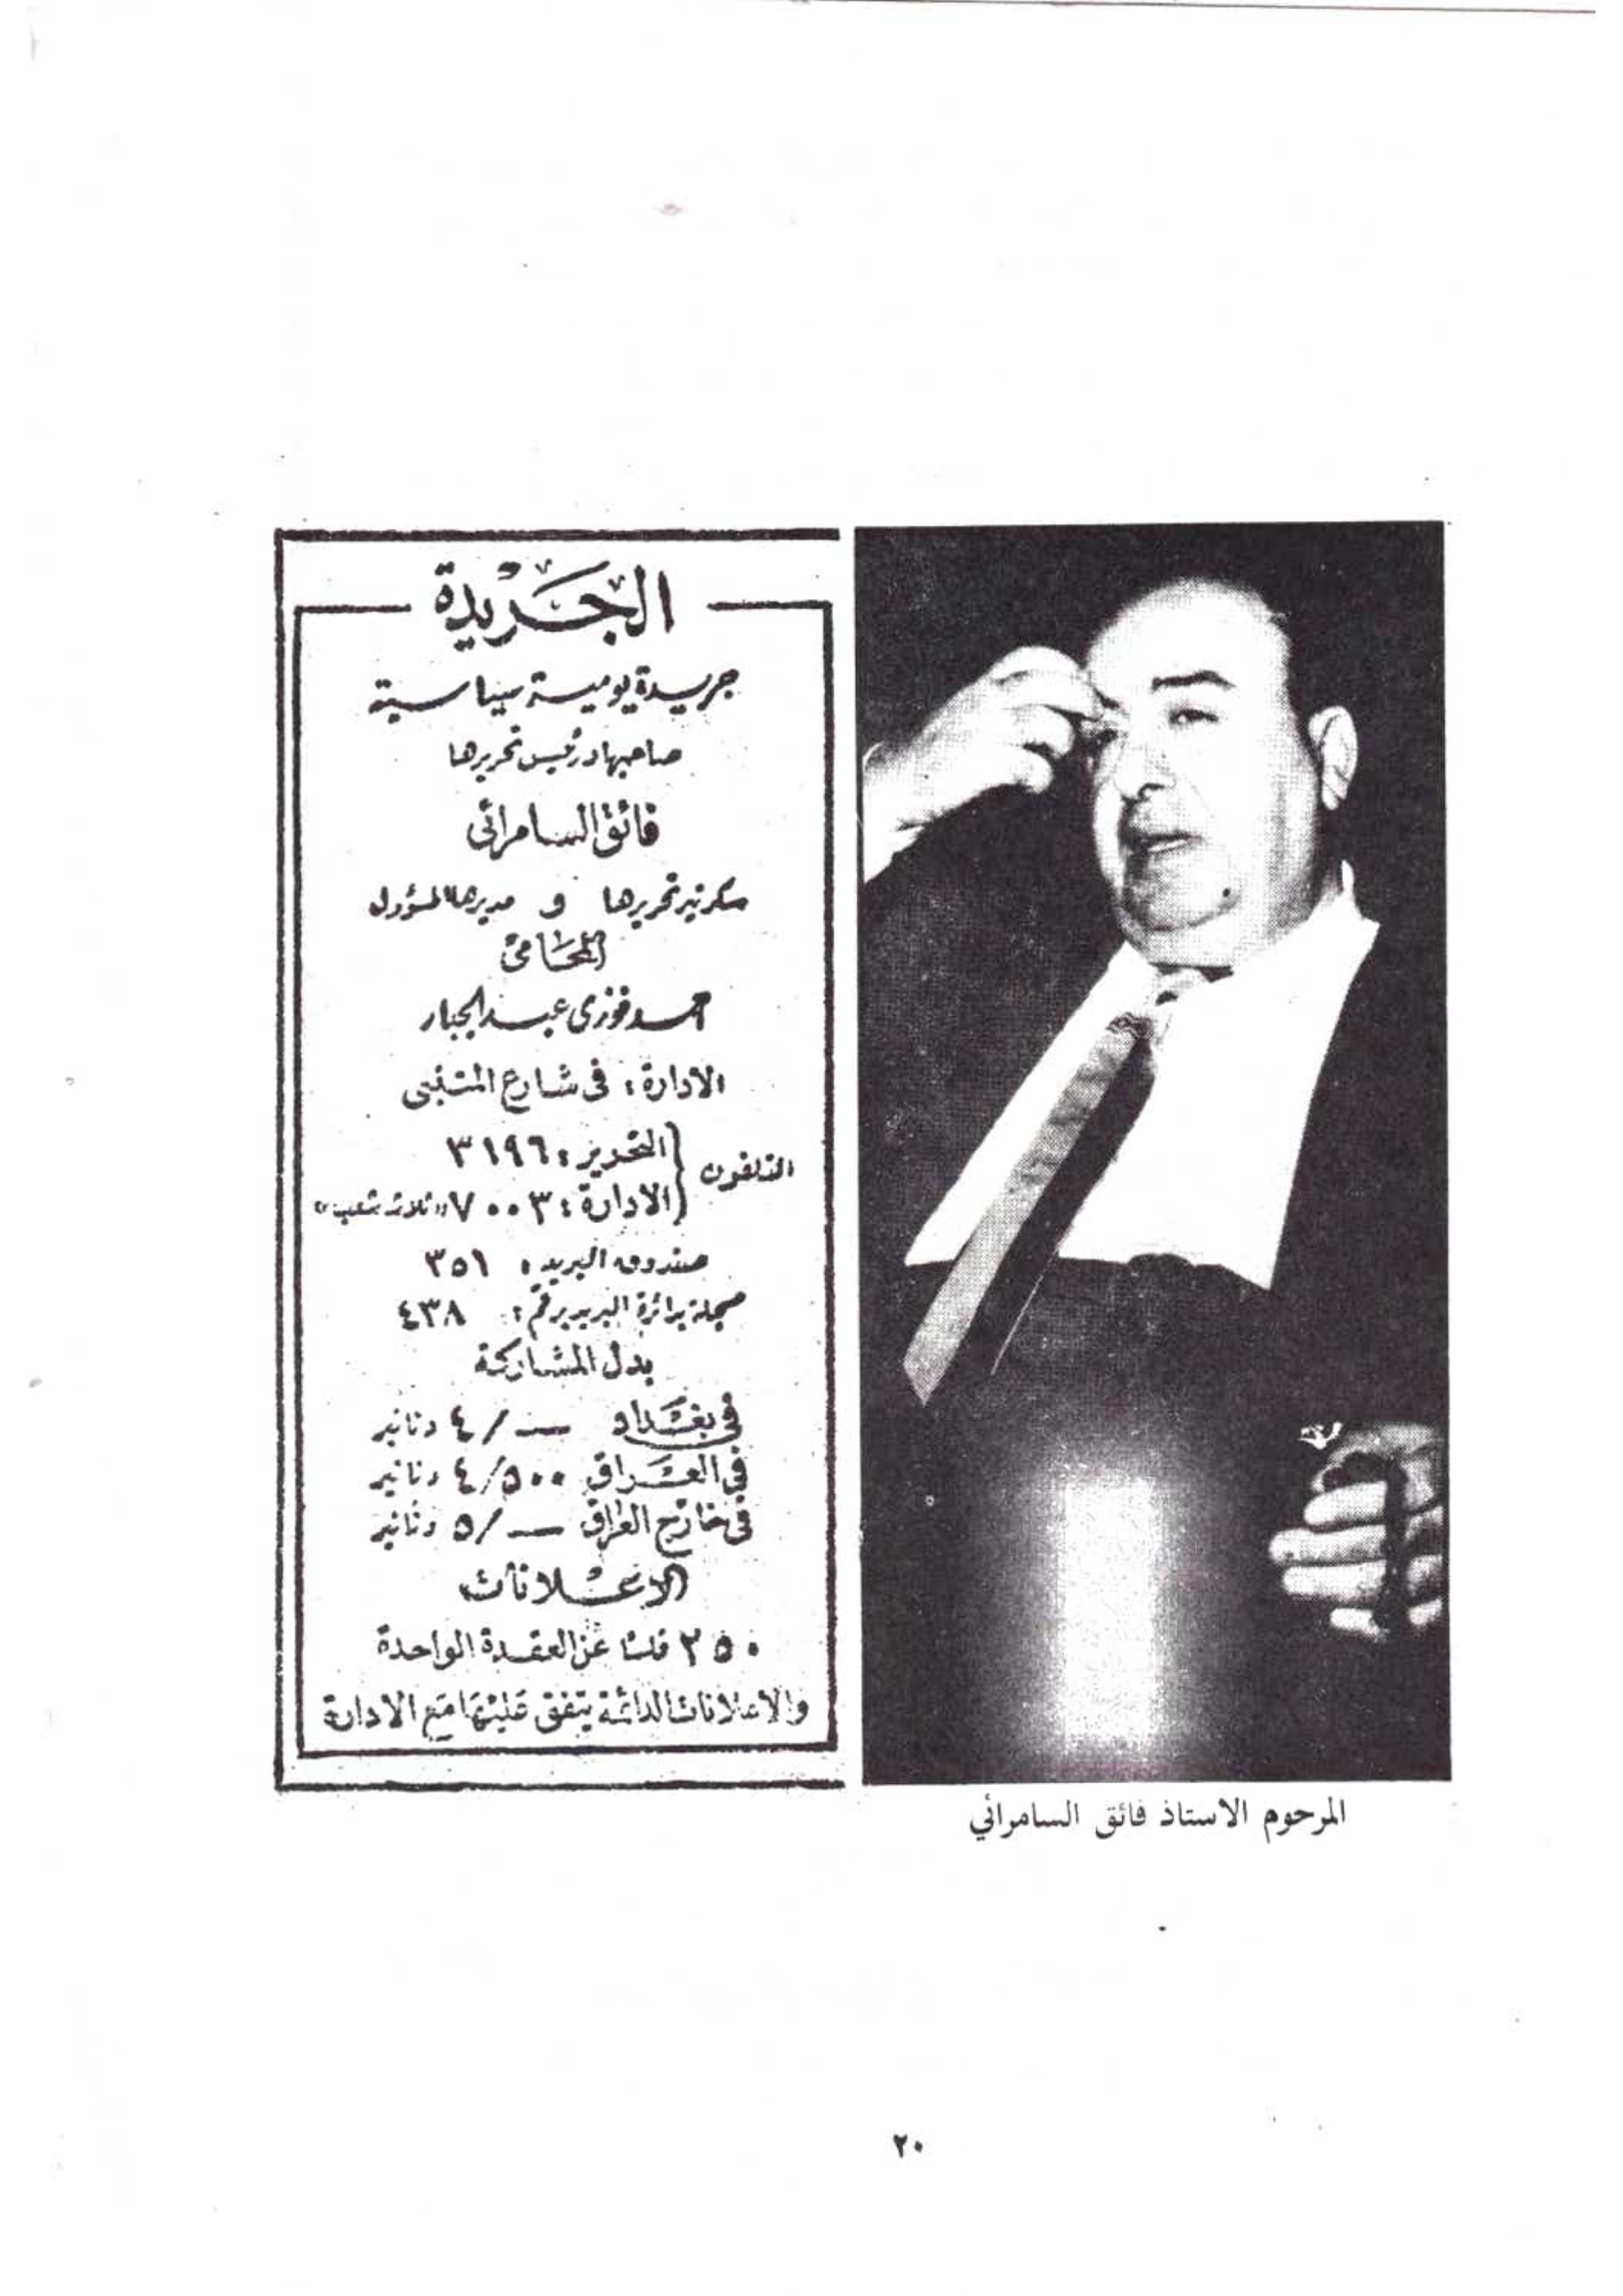 الجريدة
جريدة يومية سياسية
صاحبها ورئيس تحريرها
فائق السامرائي
سكرتير تحريرها و مديرها المسؤول
المحامي
احمد فوزي عبد الجبار
الادارة : في شارع المتنبي
التلفون
التحرير : ٣١٩٦
الادارة : ٧٠٠٣ «ثلاث شعب»
صندوق البريد : ٣٥١
مسجلة بدائرة البريد برقم : ٤٣٨
بدل المشاركة
في بغداد ــ / ٤ دنانير
في العراق ٥٠٠ / ٤ دنانير
في خارج العراق ــ / ٥ دنانير
الاعلانات
٢٥٠ فلسا عن العقدة الواحدة
والاعلانات الدائمة يتفق عليها مع الادارة
المرحوم الاستاذ فائق السامرائي
٢٠